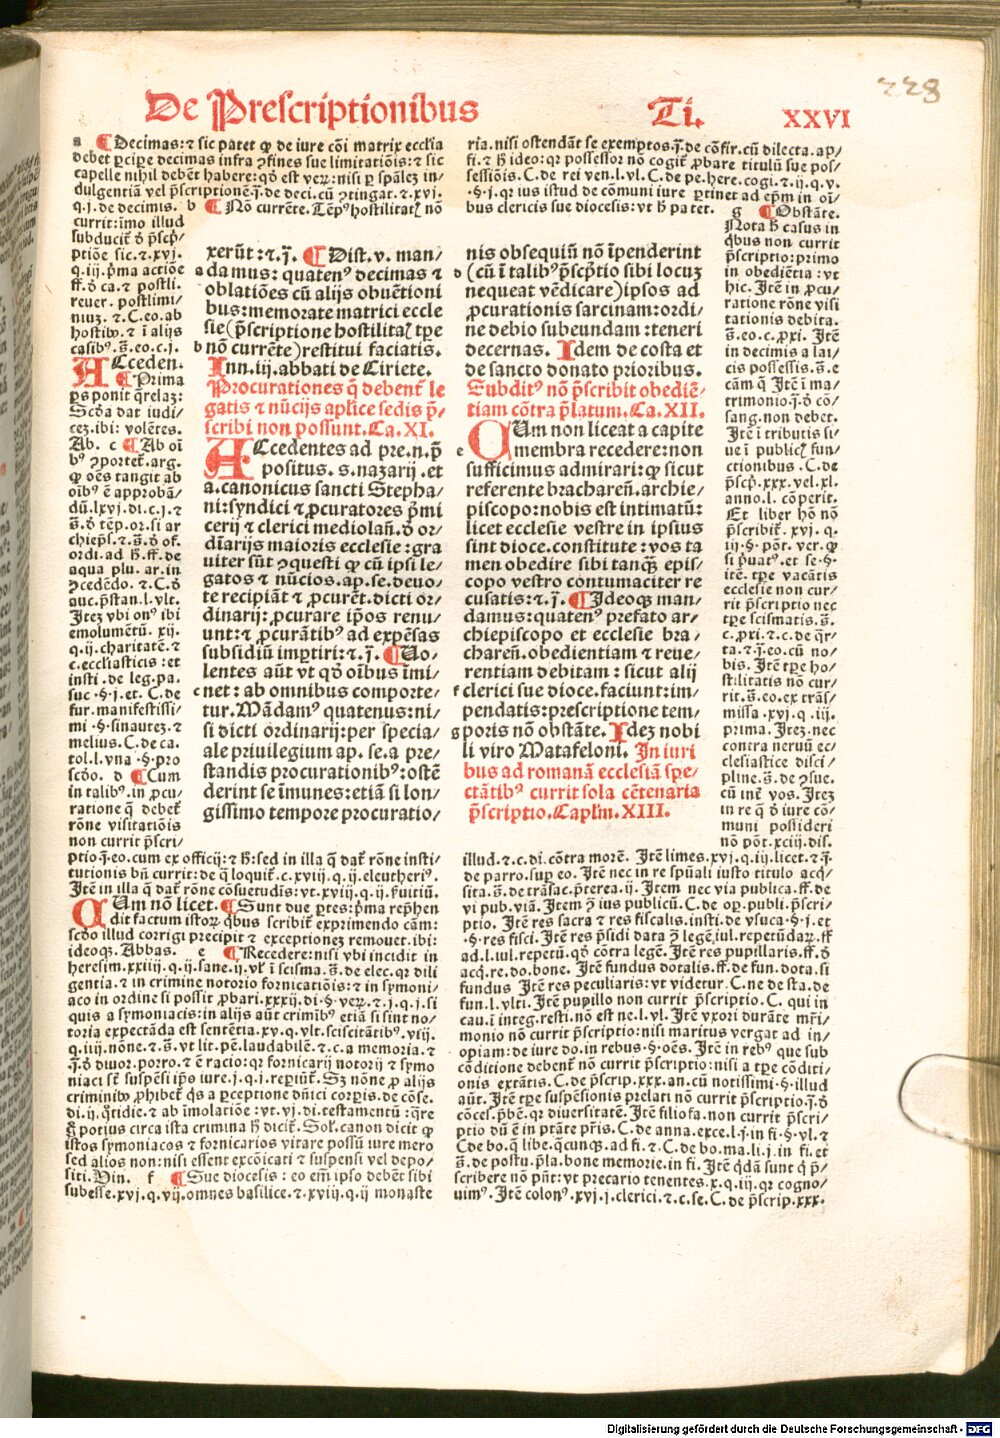 228
De Prescriptionibus Ti. XXVI
a ¶ Decimas: ⁊ sic patet ꝙ de iure cōi matrix ecclīa
debet ꝑcipe decimas infra ꝯfines sue limitatiōis: ⁊ sic
capelle nihil debēt habere: qd̄ est veꝝ: nisi ꝑ spālez in/
dulgentiā vel p̄scriptionē.j̄.de deci.cū ꝯtingat.⁊.xvj.
q.j.de decimis. b ¶ Nō currēte. Tēpꝰ hostilitatꝭ nō
currit: imo illud
subducit᷑ ō p̄scp/
ptiōe sic.⁊.xvj.
q.iij.p̄ma actiōe
ff.ō ca.⁊ postli.
reuer. postlimi/
niuz.⁊.C.eo.ab
hostiū.⁊ ī alijs
casibꝰ.s̄.eo.c.j.
ACceden.
¶ Prima
ps ponit q̄relaz:
Scd̄a dat iudi/
cez.ibi: volētes.
Ab. c ¶ Ab oī
bꝰ ꝯportet᷑.arg.
ꝙ oēs tangit ab
oībꝰ ē approbā/
dū.lxvj.di.c.j.⁊
s̄.ō tēp.or.si ar
chiep̄s.⁊.s̄.ō of.
ordi.ad h̄.ff.de
aqua plu.ar.in
ꝯcedēdo.⁊.C.ō
auc.p̄stan.l.vlt.
Itez vbi onꝰ ibi
emolumētū.xij.
q.ij.charitatē.⁊
c.eccl̄iasticis: et
insti.de leg.pa.
suc.§.j.et.C.de
fur.manifestissi/
mi.§.sinautez.⁊
melius.C.de ca.
tol.l.vna.§.pro
scd̄o. d ¶ Cum
in talibꝰ.in ꝓcu/
ratione q̄ debet᷑
rōne visitatiōis
non currit p̄scri/
ptio.j̄.eo.cum ex officij: ⁊ h̄: sed in illa q̄ dat᷑ rōne insti/
tutionis bn̄ currit: de q̄ loquit᷑.c.xviij.q.ij.eleutheriꝰ.
Itē in illa q̄ dat᷑ rōne cōsuetudis: vt.xviij.q.ij.ſuitiū.
CUm nō licet. ¶ Sunt due ꝑtes: p̄ma rep̄hen
dit factum istoꝝ q̄bus scribit᷑ exprimendo cām:
scd̄o illud corrigi precipit ⁊ exceptionez remouet.ibi:
ideoqꝫ.Abbas. e ¶ Recedere: nisi vbi incidit in
heresim.xxiiij.q.ij.sane.ij.vl᷑ ī scisma.s̄.de elec.qr dili
gentia.⁊ in crimine notorio fornicatiōis: ⁊ in symoni/
aco in ordine si possit ꝓbari.xxxij.di.§.veꝝ.⁊.j.q.j.si
quis a symoniacis: in alijs aūt crimībꝰ etiā si sint no/
toria expectāda est sentētia.xv.q.vlt.sciscitātibꝰ.viij.
q.iiij.nōne.⁊.s̄.vt lit.pē.laudabilē.⁊.c.a memoria.⁊
j̄.ō diuor.porro.⁊ ē racio: qr fornicarij notorij ⁊ symo
niaci st̄ suspēsi ip̄o iure.j.q.j.reꝑiūt᷑.Sꝫ nōne ꝓ alijs
criminiᵬ ꝓhibet᷑ q̄s a ꝑceptione dn̄ici corpis.de cōse.
di.ij.q̄tidie.⁊ ab īmolatiōe: vt.vj.di.testamentū: q̄re
g̊ potius circa ista crimina h̄ dicit᷑.Sol᷑.canon dicit ꝙ
istos symoniacos ⁊ fornicarios vitare possū iure mero
sed alios non: nisi essent excōicati ⁊ suspensi vel depo/
siti.Vin. f ¶ Sue diocesis: eo em̄ ipso debēt sibi
subesse.xvj.q.vij.omnes basilice.⁊.xviij.q.ij monaste
xerūt: ⁊.j̄. ¶ Dist.v.man/
a damus: quatenꝰ decimas ⁊
oblatiōes cū alijs obuētioni
bus: memorate matrici eccle
sie(p̄scriptione hostilitatꝭ tp̄e
b nō currēte)restitui faciatis.
Inn.iij.abbati de Ciriete.
Procurationes q̄ debent᷑ le
gatis ⁊ nūcijs aplice sedis p̄/
scribi non possunt.Ca.XI.
ACcedentes ad pre.n.p̄
positus.s.nazarij.et
a.canonicus sancti Stepha/
ni: syndici ⁊ ꝓcuratores p̄mi
cerij ⁊ clerici mediolan̄.ō or/
dīarijs maioris ecclesie: gra/
uiter sūt ꝯquesti ꝙ cū ip̄i le/
gatos ⁊ nūcios.ap.se.deuo/
te recipiāt ⁊ ꝓcurēt.dicti or/
dinarij: ꝓcurare ip̄os renu/
unt: ⁊ ꝓcurātibꝰ ad expēsas
subsidiū imꝑtiri: ⁊.j̄. ¶ Vo/
lentes aūt vt qd̄ oībus īmi/
c net: ab omnibus comporte/
tur.Mādamꝰ quatenus: ni/
si dicti ordinarij: per specia/
ale priuilegium ap.se.a pre/
standis procurationibꝰ: ostē
derint se īmunes: etiā si lon/
gissimo tempore procuratio/
ria.nisi ostendāt se exemptos.j̄.de cōfir.cū dilecta.ap/
fi.⁊ h̄ ideo: qr possessor nō cogit᷑ ꝓbare titulū sue pos/
sessiōis.C.de rei ven.l.vl.C.de pe.here.cogi.⁊.ij.q.v.
.§.j.qr ius istud de cōmuni iure ꝑtinet ad ep̄m in oī/
bus clericis sue diocesis: vt h̄ patet. g ¶ Obstāte.
nis obsequiū nō īpenderint
d (cū ī talibꝰ p̄scp̄tio sibi locuz
nequeat vēdicare)ipsos ad
ꝓcurationis sarcinam: ordi/
ne debio subeundam: teneri
decernas. Idem de costa et
de sancto donato prioribus.
Subditꝰ nō p̄scribit obediē/
tiam cōtra p̄latum.Ca.XII.
CUm non liceat a capite
e membra recedere: non
sufficimus admirari: ꝙ sicut
referente bracharen̄.archie/
piscopo: nobis est intimatū:
licet ecclesie vestre in ipsius
sint dioce.constitute: vos ta
men obedire sibi tanqꝫ epis/
copo vestro contumaciter re
cusatis: ⁊.j̄. ¶ Ideoqꝫ man/
damus: quatenꝰ prefato ar/
chiepiscopo et ecclesie bra/
charen̄.obedientiam ⁊ reue/
rentiam debitam: sicut alij
f clerici sue dioce.faciunt: im/
pendatis: prescriptione tem/
g poris nō obstāte. Idez nobi
li viro Matafeloni. In iuri
bus ad romanā ecclesiā spe/
ctātibꝰ currit sola cētenaria
p̄scriptio.Caplm̄.XIII.
Nota h̄ casus in
q̄bus non currit
p̄scriptio: primo
in obediētia: vt
hic.Itē in ꝓcu/
ratione rōne visi
tationis debita.
s̄.eo.c.ꝓxi.Itē
in decimis a lai/
cis possessis.s̄.e
cām q̄ Itē ī ma/
trimonio.j̄.ō cō/
sang.non debet.
Itē ī tributis si/
ue ī publicꝭ fun/
ctionibus.C.de
p̄scp̄.xxx.vel.xl.
anno.l.cōperit.
Et liber hō nō
p̄scribit᷑.xvj.q.
iij.§.pōt.ver.ꝙ
si p̄uatꝰ.et se.§.
itē.tp̄e vacātis
ecclesie non cur/
rit p̄scriptio nec
tp̄e scismatis.s̄.
c.ꝓxi.⁊.c.de q̄r/
ta.⁊.j̄.eo.cū no/
bis.Itē tp̄e ho/
stilitatis nō cur/
rit.s̄.eo.ex trās/
missa.xvj.q.iij.
prima.Itez nec
contra neruū ec/
clesiastice disci/
pline.s̄.de ꝯsue.
cū inē vos.Itez
in re q̄ ō iure cō/
muni possideri
nō pōt.xciij.dis.
illud.⁊.c.di.cōtra morē. Itē limes.xvj.q.iij.licet.⁊.j̄.
de parro.sup̄ eo. Itē nec in re sp̄uali iusto titulo acq̄/
sita.s̄.de trāsac.p̄terea.ij. Itē nec via publica.ff.de
vi pub.viā. Itē ꝯ ius publicū.C.de oꝑ.publi.p̄scri/
ptio. Itē res sacra ⁊ res fiscalis.insti.de vsuca.§.j.et
.§.res fisci. Itē res p̄sidi data ꝯ legē.iul.repetūdaꝝ.ff
ad.l.iul.repetū.qd̄ cōtra legē.Itē res pupillaris.ff.ō
acq̄.re.do.bone. Itē fundus dotalis.ff.de fun.dota.si
fundus Itē res peculiaris: vt videtur.C.ne de sta.de
fun.l.vlti. Itē pupillo non currit p̄scriptio.C.qui in
cau.ī integ.resti.nō est ne.l.vl. Itē vxori durāte mr̄i/
monio nō currit p̄scriptio: nisi maritus vergat ad in/
opiam: de iure do.in rebus.§.oēs. Itē in rebꝰ que sub
cōditione debent᷑ nō currit p̄scriptio: nisi a tp̄e cōditi/
onis extātis.C.de p̄scrip.xxx.an.cū notissimi.§.illud
aūt. Itē tp̄e suspēsionis prelati nō currit p̄scriptio.j̄.ō
cōces.p̄bē.qr diuersitatē. Itē filiofa.non currit p̄scri/
ptio dū ē in ptāte pr̄is.C.de anna.exce.l.j.in fi.§.vl.⁊
C de bo.q̄ libe.q̄cunqꝫ.ad fi.⁊.C.de bo.ma.li.j.in fi.et
s̄.de postu.p̄la.bone memorie.in fi. Itē q̄dā sunt q̄ p̄/
scribere nō pn̄t: vt precario tenentes.x.q.iij.qr cogno/
uimꝰ. Itē colonꝰ.xvj.j.clerici.⁊.c.se.C.de p̄scrip.xxx.
Digitalisierung gefördert durch die Deutsche Forschungsgemeinschaft - DFG